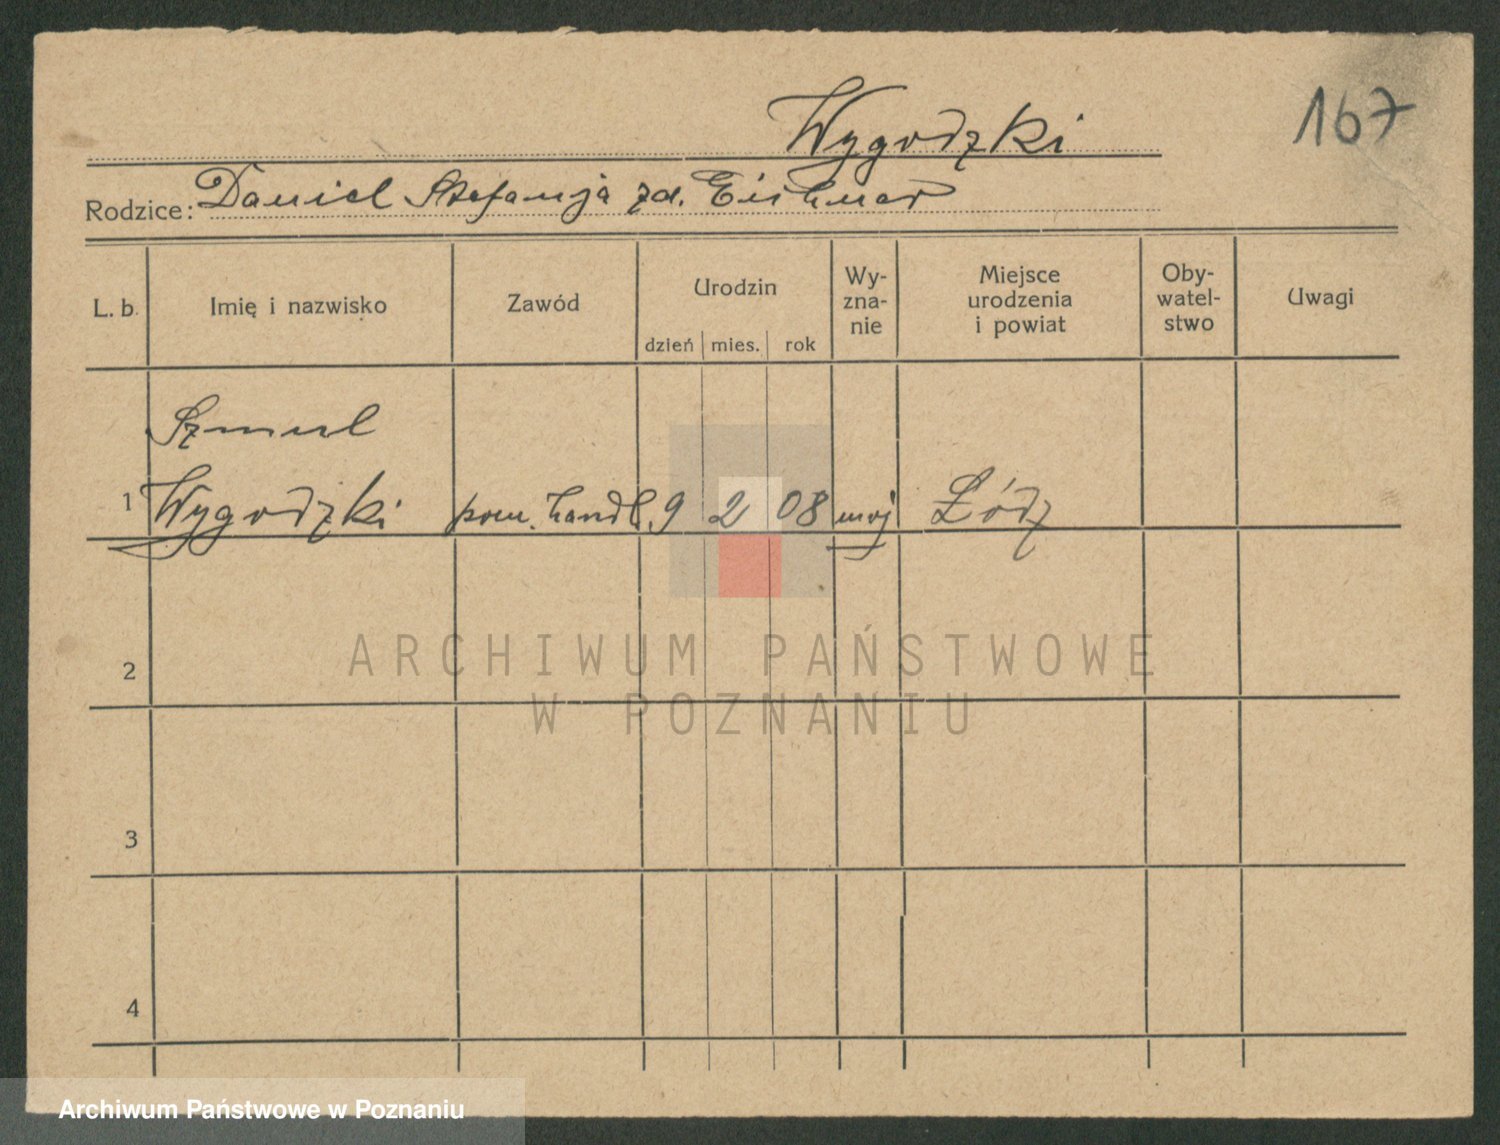 Wygodzki
167
Rodzice: Daniel Stefanja zd. Eichner
L. b. Imię i nazwisko Zawód Urodzin dzień mies. rok Wy-zna-nie Miejsce urodzenia i powiat Oby-watel-stwo Uwagi
Szmul
1 Wygodzki pom. handl. 9 2 08 moj Łódz
2
ARCHIWUM PAŃSTWOWE
W POZNANIU
3
4
Archiwum Państwowe w Poznaniu